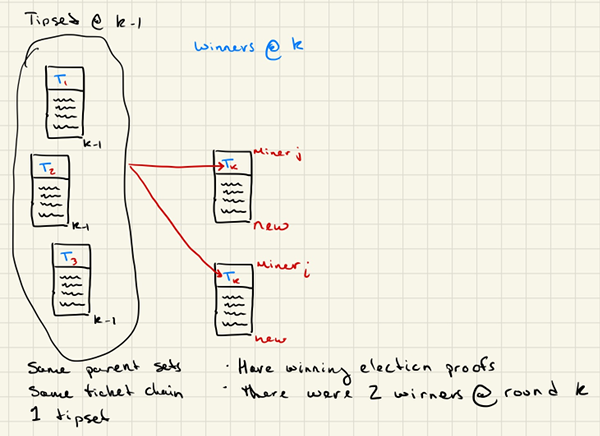 Tipset @ k-1
Winners @ k
T1
k-1
T2
k-1
T3
k-1
Miner j
Tk
new
Miner j
Tk
new
Same parent sets
Same ticket chain
1 tipset
· Have winning election proofs
· There were 2 winners @ round k